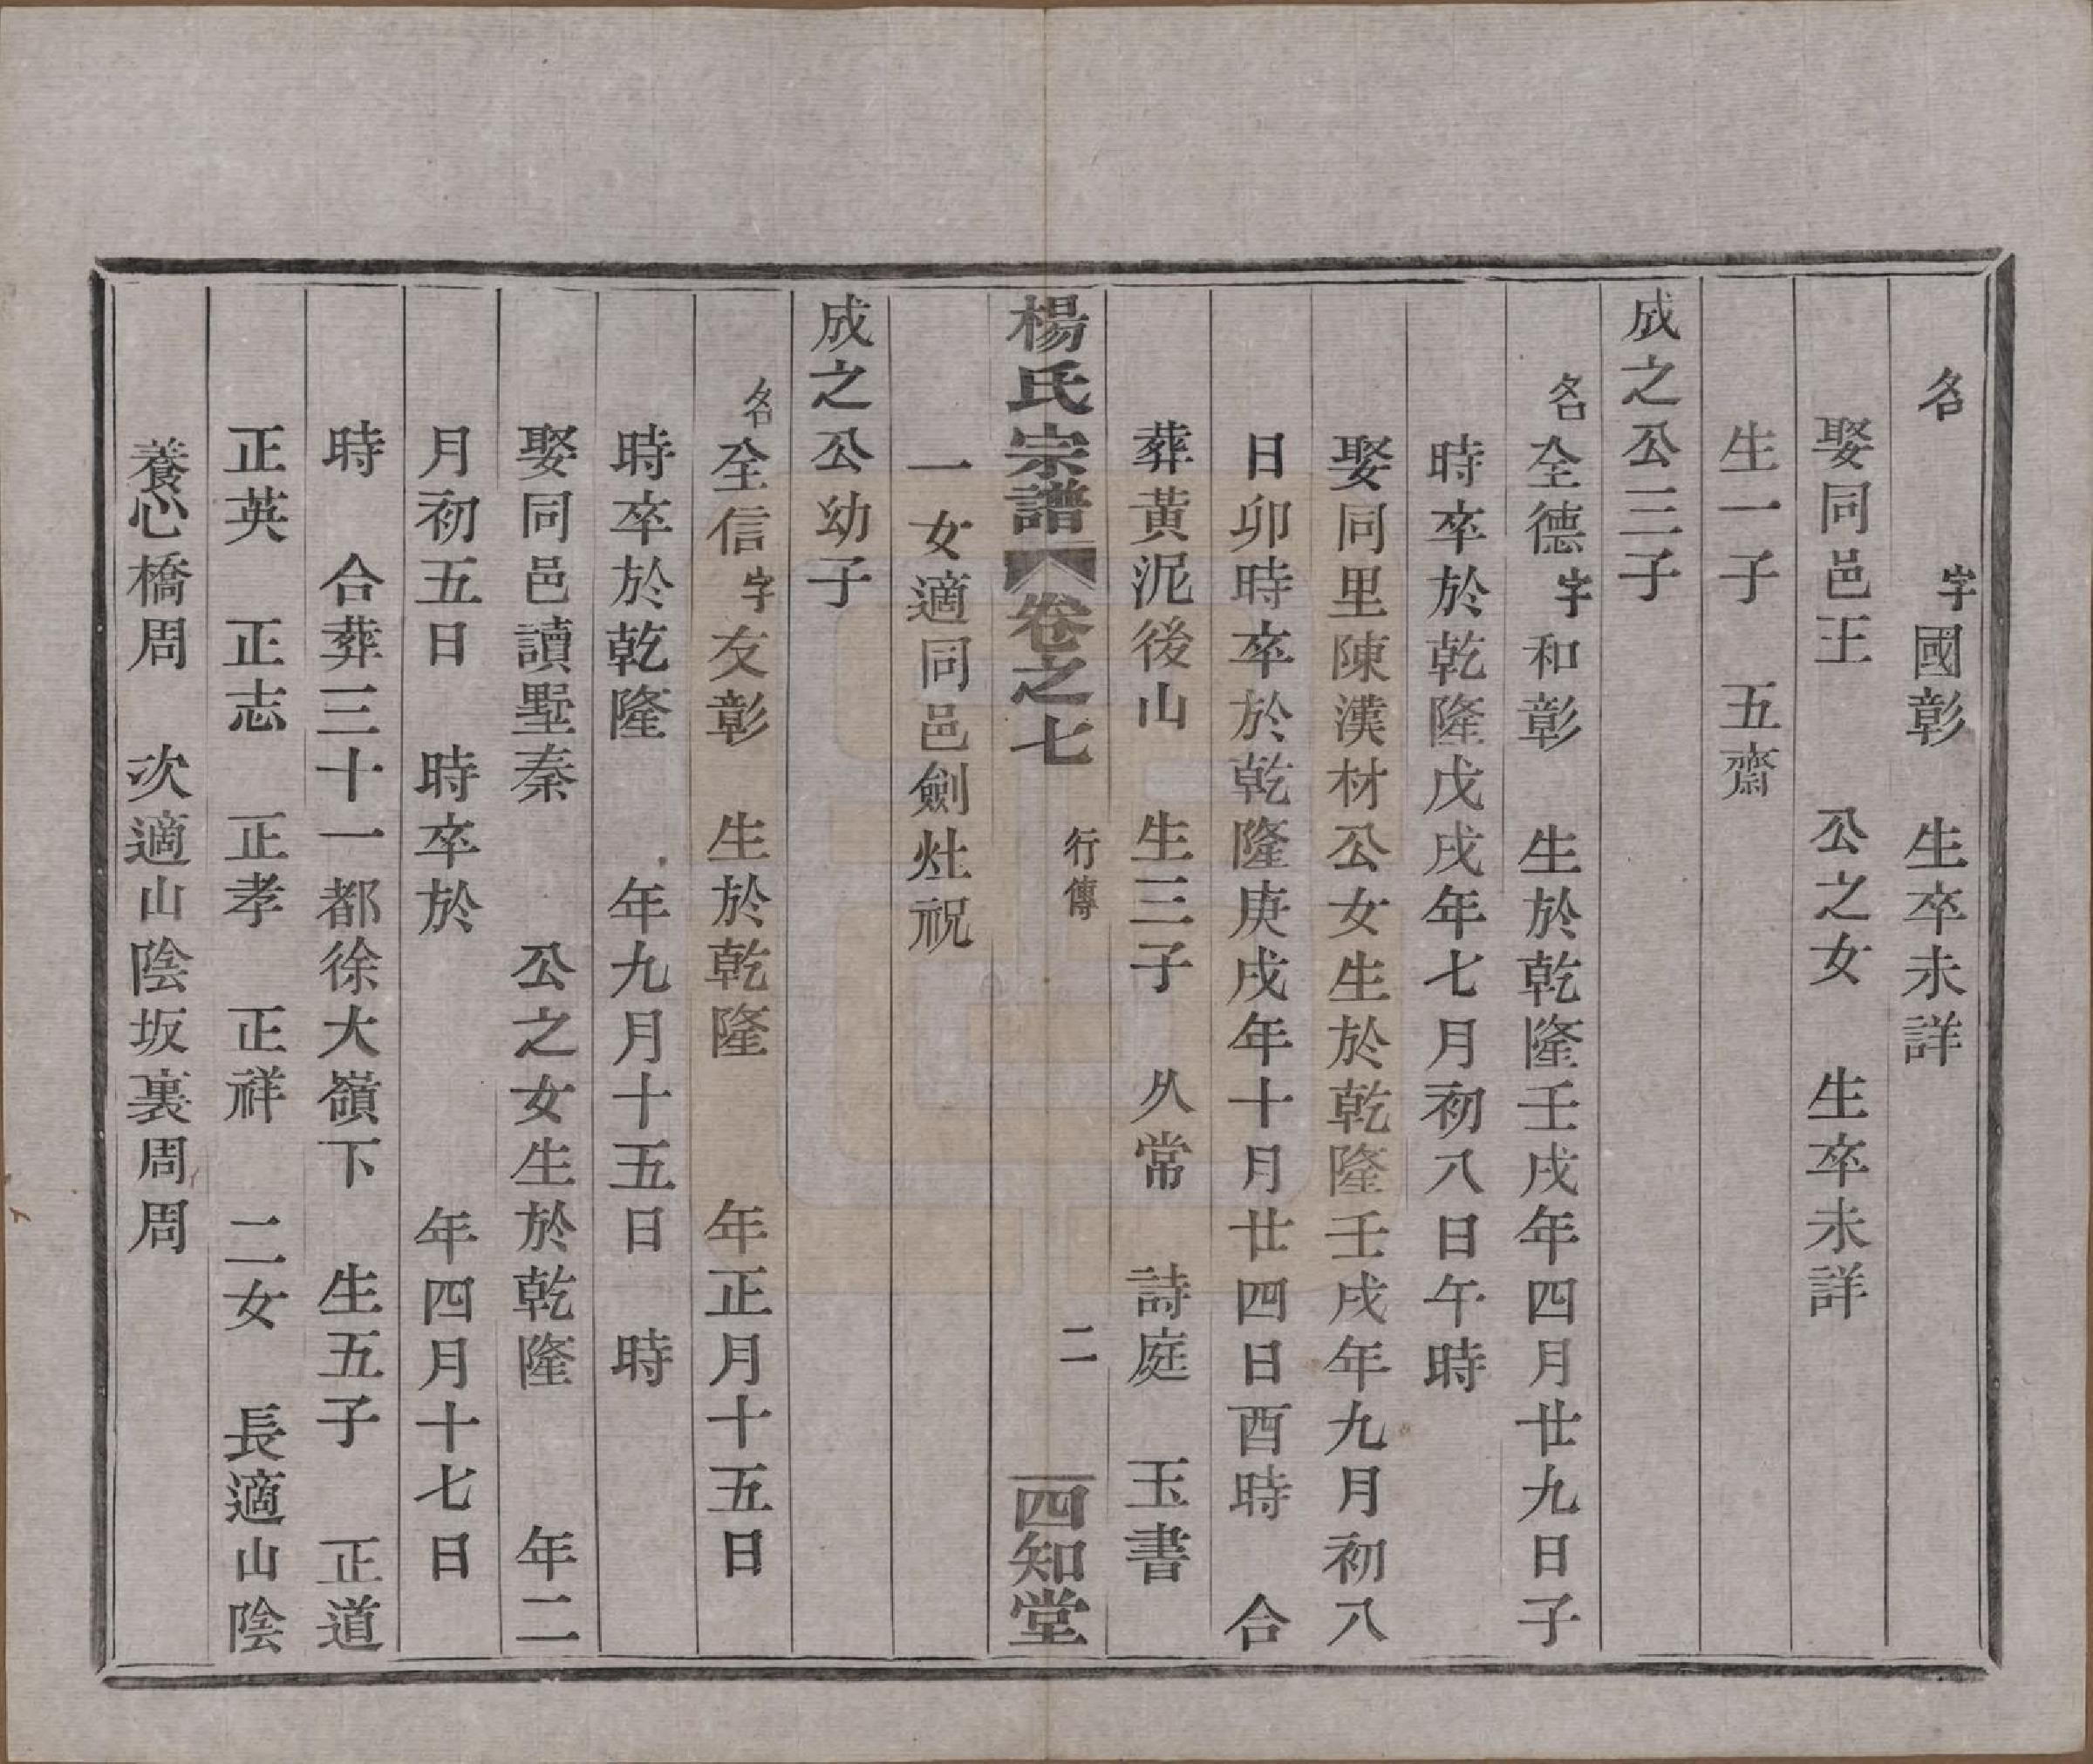 名　　字國彰　生卒未詳
娶同邑王　　公之女　生卒未詳
生一子　五齋
成之公三子
名全德字和彰　生於乾隆壬戌年四月廿九日子
時卒於乾隆戊戌年七月初八日午時
娶同里陳漢材公女生於乾隆壬戌年九月初八
日卯時卒於乾隆庚戌年十月廿四日酉時　合
葬黃泥後山　生三子　久常　詩庭　玉書
楊氏宗譜　卷之七　行傳　二　四知堂
一女適同邑劍灶祝
成之公幼子
名全信字友彰　生於乾隆　　年正月十五日
時卒於乾隆　　年九月十五日　時
娶同邑讀墅秦　　公之女生於乾隆　　年二
月初五日　時卒於　　　　年四月十七日
時　合葬三十一都徐大嶺下　生五子　正道
正英　正志　正孝　正祥　二女　長適山陰
養心橋周　次適山陰坂裏周周